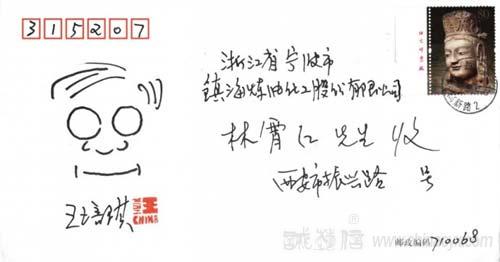 315207
浙江省宁波市
镇海炼油化工股份有限公司
林霄红 先生 收
西安市振兴路 号
CHINA
新路2
邮政编码710068